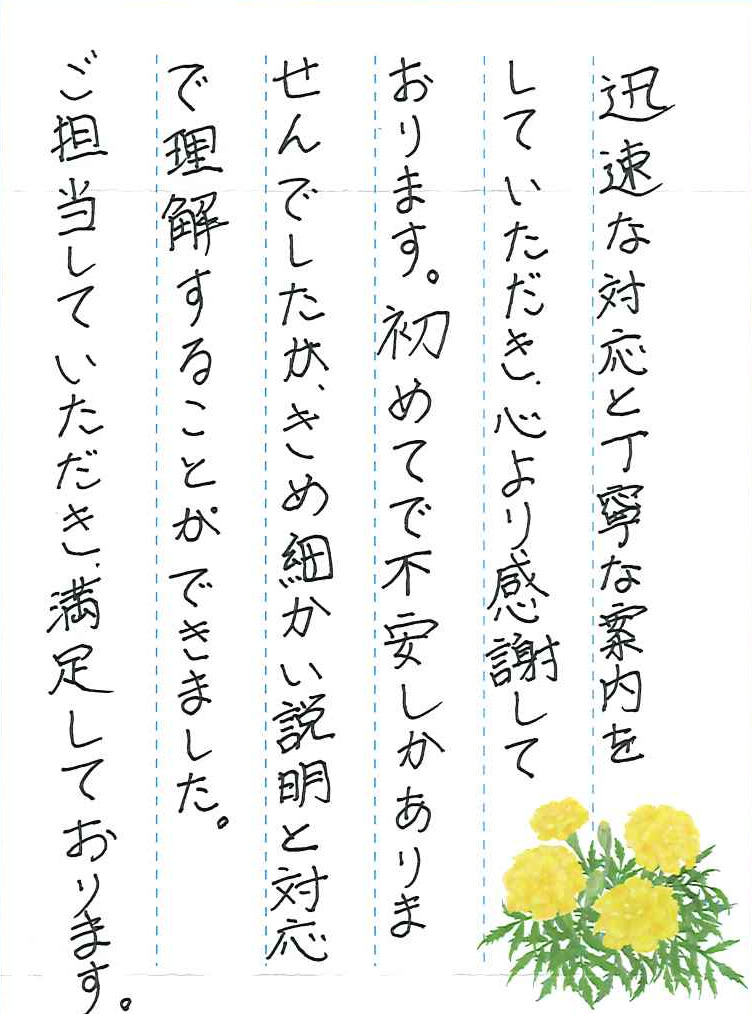 迅速な対応と丁寧な案内を
していただき、心より感謝して
おります。初めてで不安しかありま
せんでしたが、きめ細かい説明と対応
で理解することができました。
ご担当していただき、満足しております。